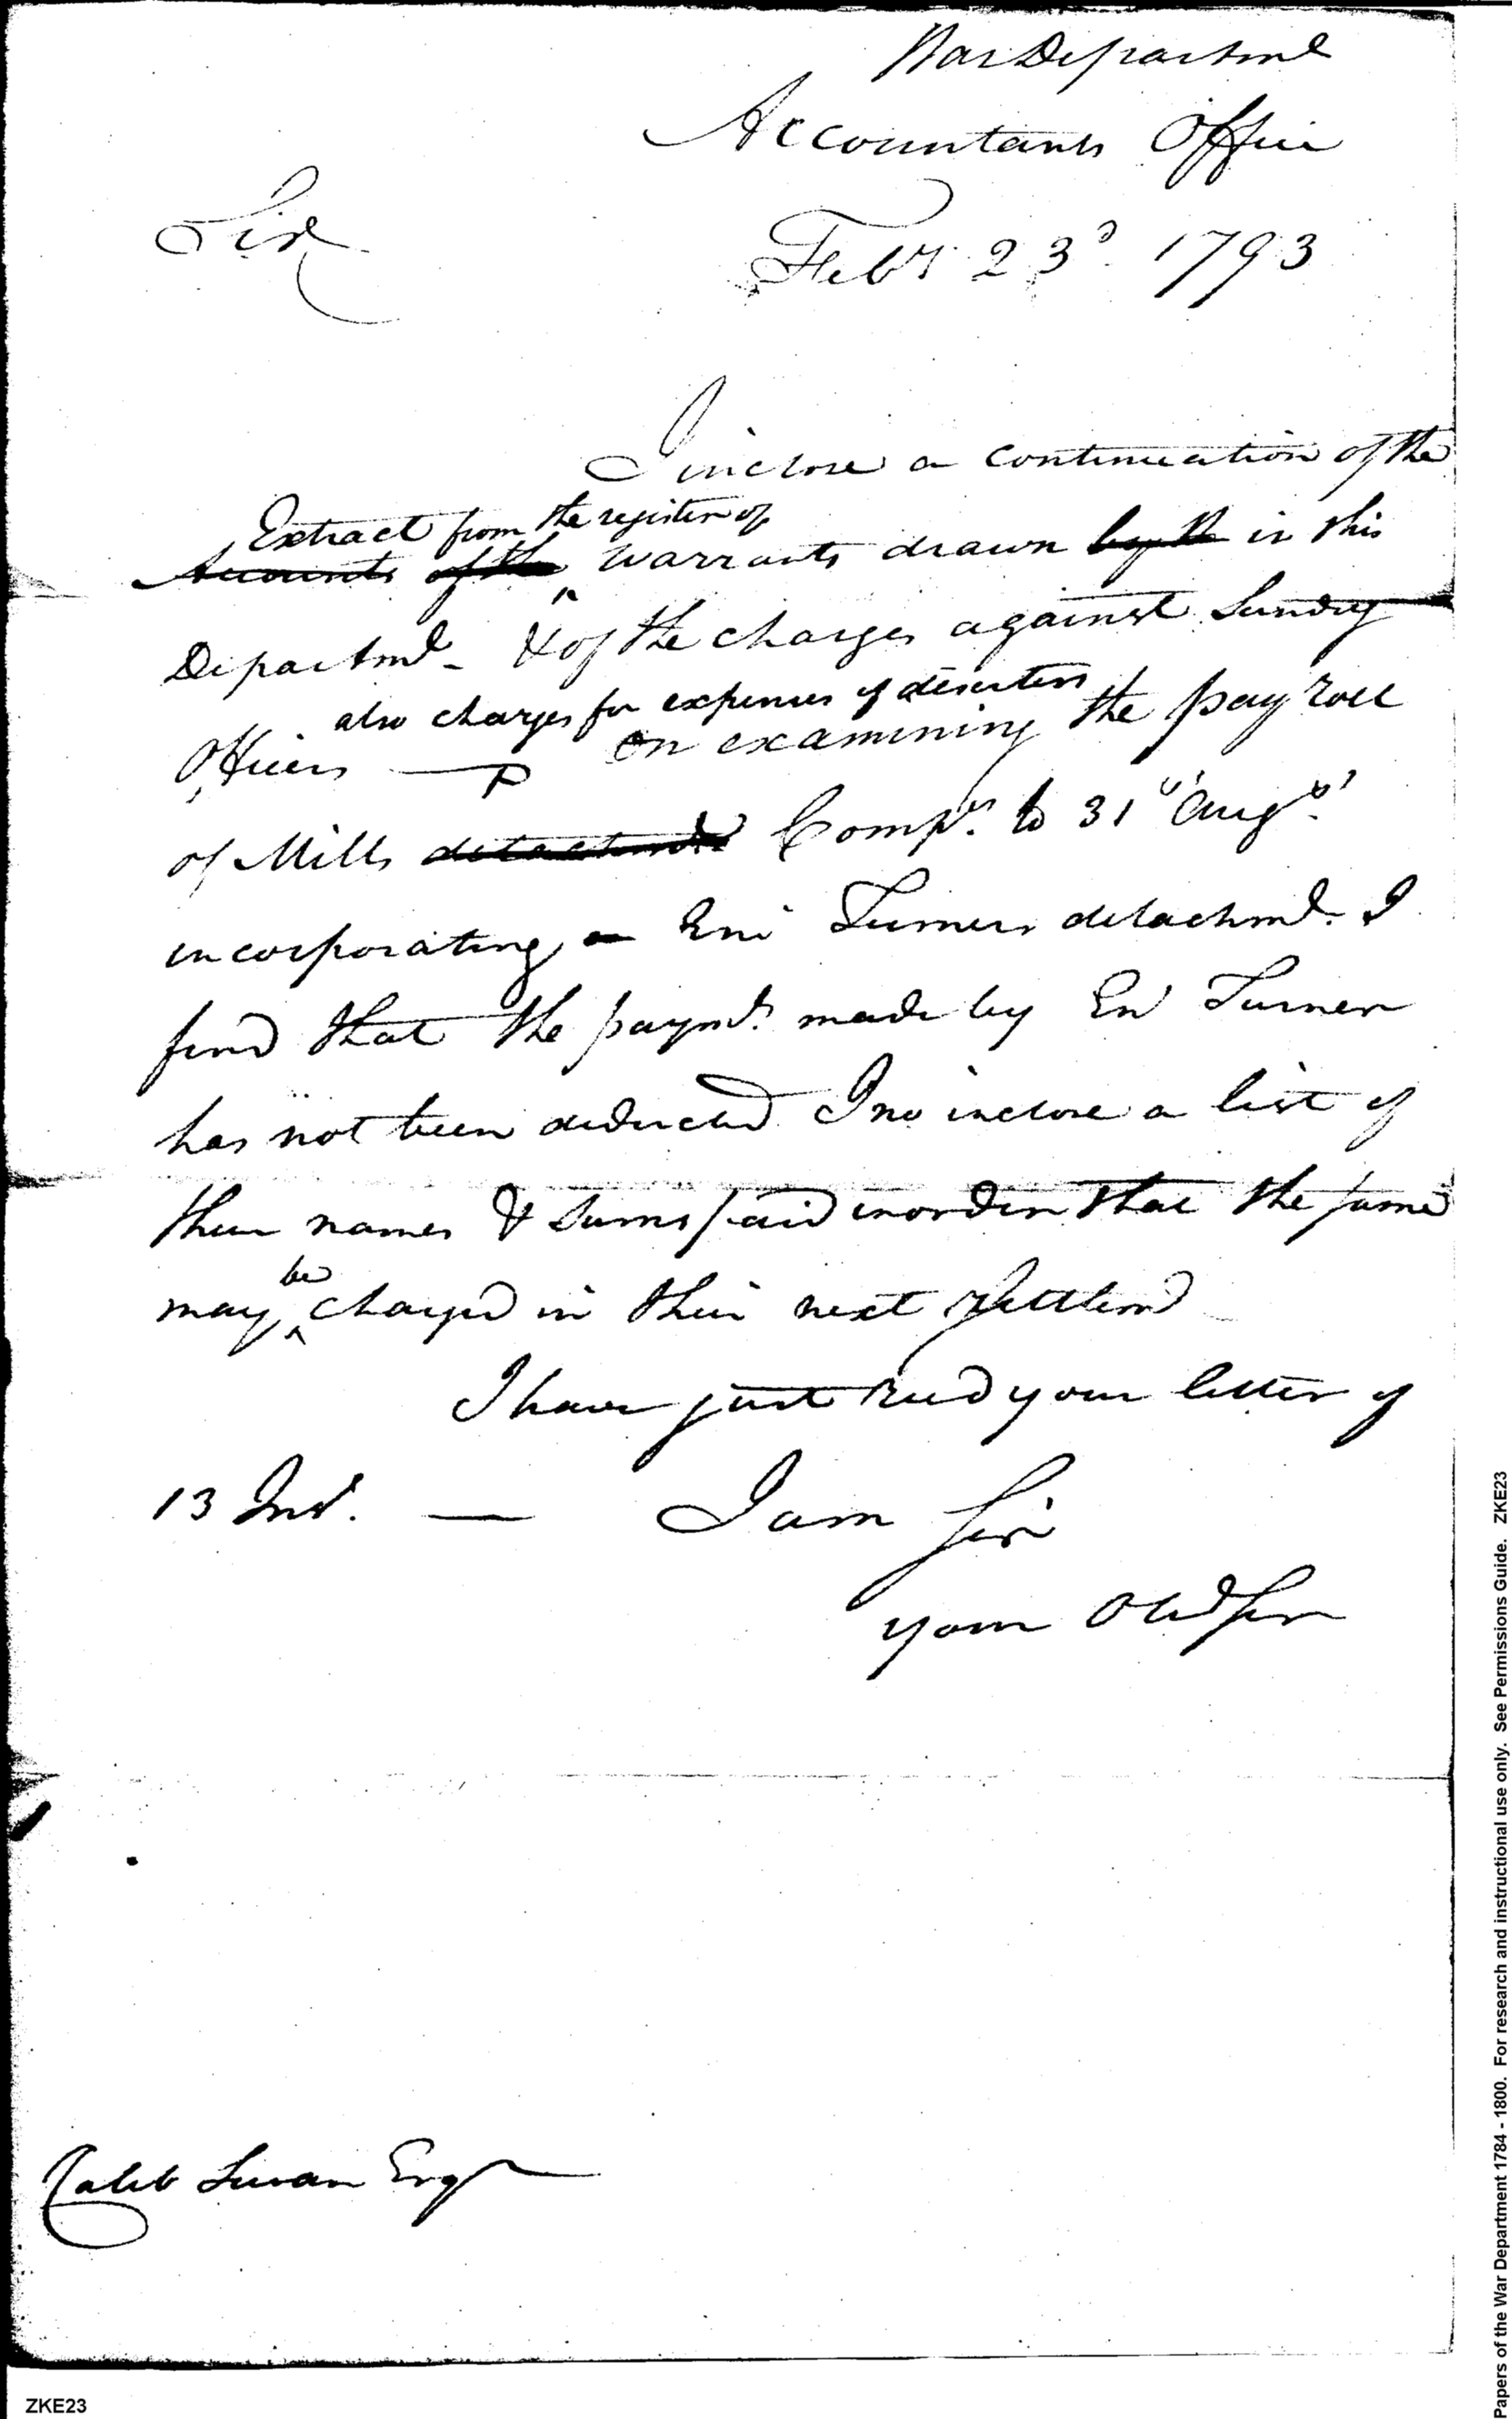 War Departmt
Accountants Office
Sir
Feby 23d 1793
I inclose a continuation of the
Extract from the register of
Accounts of the warrants drawn by th in this
Departmt - & of the charges against Sundry
also charges for expenses of deserters
Officers — On examining the pay roll
of Mills detachmt Compy. to 31st Augst
incorporating Ens Turners detachmt. I
find that the paymts made by En Turner
has not been deducted I no inclose a list of
their names & sums paid in order that the same
be
may ^ charged in their next settlemt
I have just recd your letter of
13 Inst. — I am Sir
your Obd Ser
Caleb Swan Esqr
ZKE23
Papers of the War Department 1784 - 1800. For research and instructional use only. See Permissions Guide. ZKE23